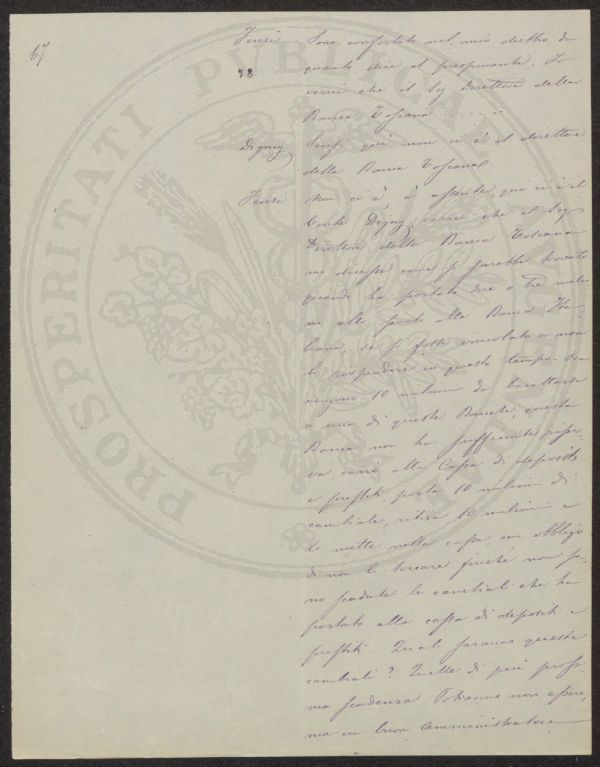 67
Fenzi Sono confortato nel mio dubbio da
78 quanto dice il preopinante. Io
vorrei che il Sig Direttore della
Banca Toscana . . . . . .
Digny Scusi qui non ci è il direttore
della Banca Toscana.
Fenzi Non ci è, è assente, qui ci è il
Conte Digny, vorrei che il Sig.
Direttore della Banca Toscana
mi dicesse come si sarebbe trovato
quando ha portato due o tre milio
ni alto alla Banca Ita
liana, se si fosse vincolato a non
li spendere in questo tempo. Ora
vengono 10 milioni da barattarsi
a una di queste Banche, questa
Banca non ha sufficiente riser
va, corre alla Cassa di depositi
e prestiti porta 10 milioni di
cambiale, ritira 10 milioni e
li mette nella cassa con obbligo
di non li toccare finché non so
no scadute le cambiali che ha
portato alla cassa di depositi e
prestiti. Quali saranno queste
cambiali? Quelle di più prossi
ma scadenza Potranno non essere,
ma un buon Amministratore
PROSPERITATI PUBLICAE AUGENDAE